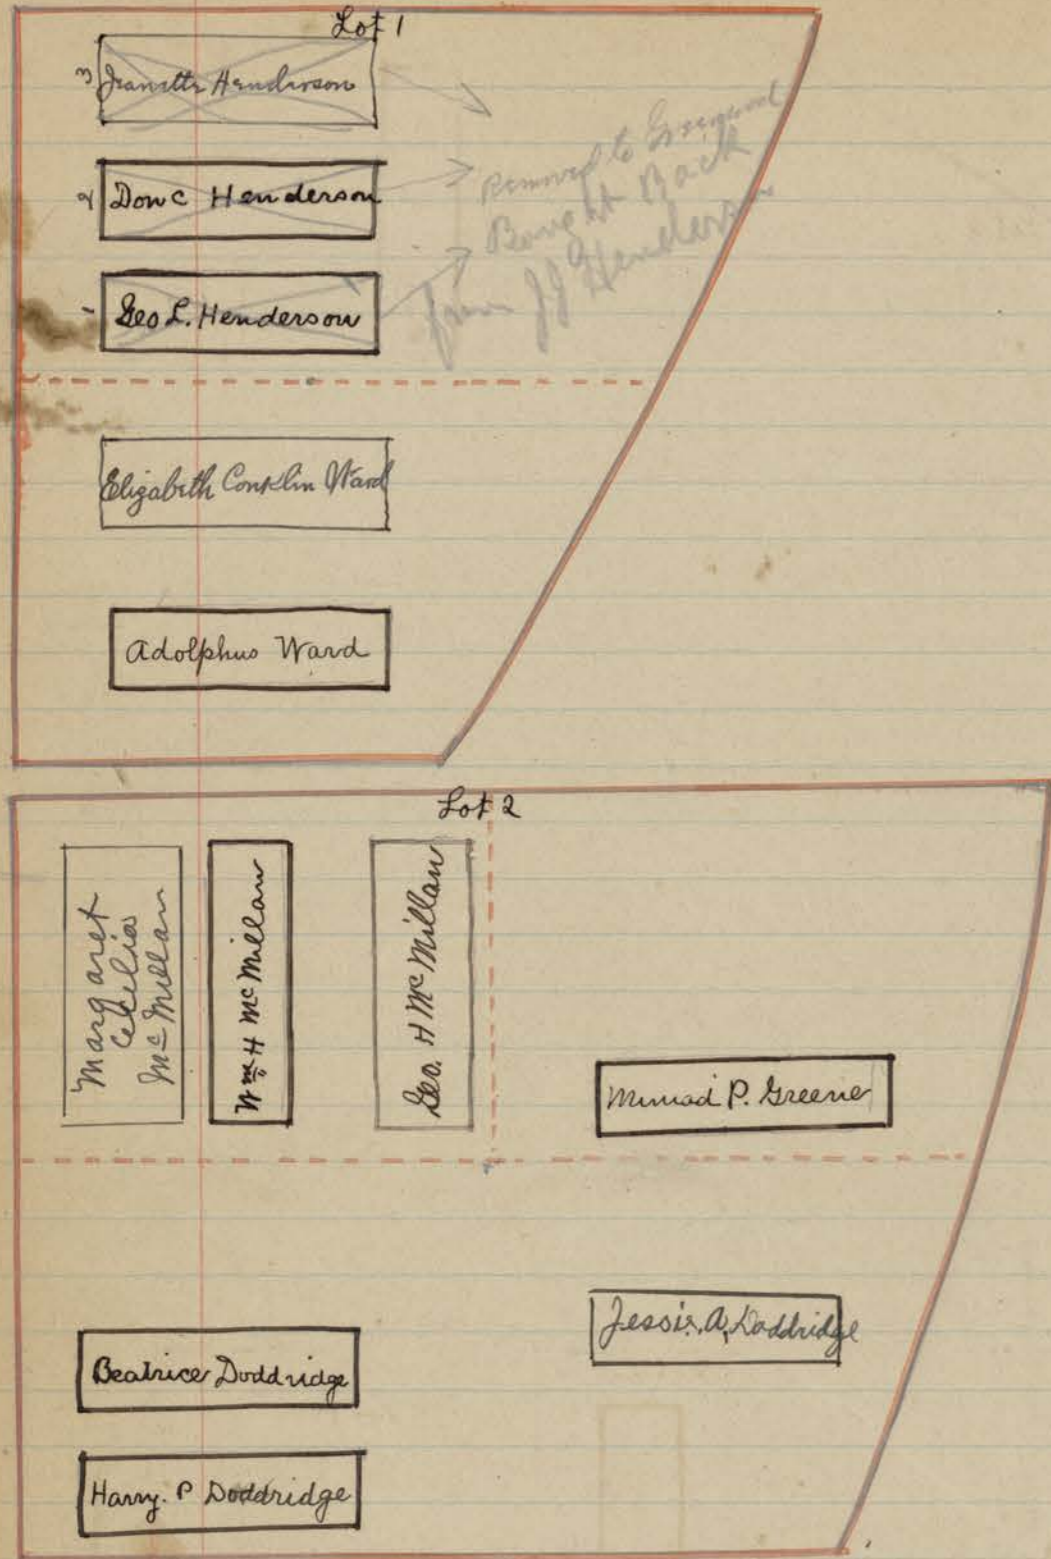 Lot 1
3 Jeanette Henderson
2 Don C Henderson
1 Geo L. Henderson
Removed to Greenwood
Bought Back
from J J Henderson
Elizabeth Conklin Ward
Adolphus Ward
Lot 2
Margaret
Cecelia
Mc Millan
Wm H Mc Millan
Geo. H Mc Millan
P. Greene
Jessie. A. Doddridge
Beatrice Doddridge
Harry. P Doddridge